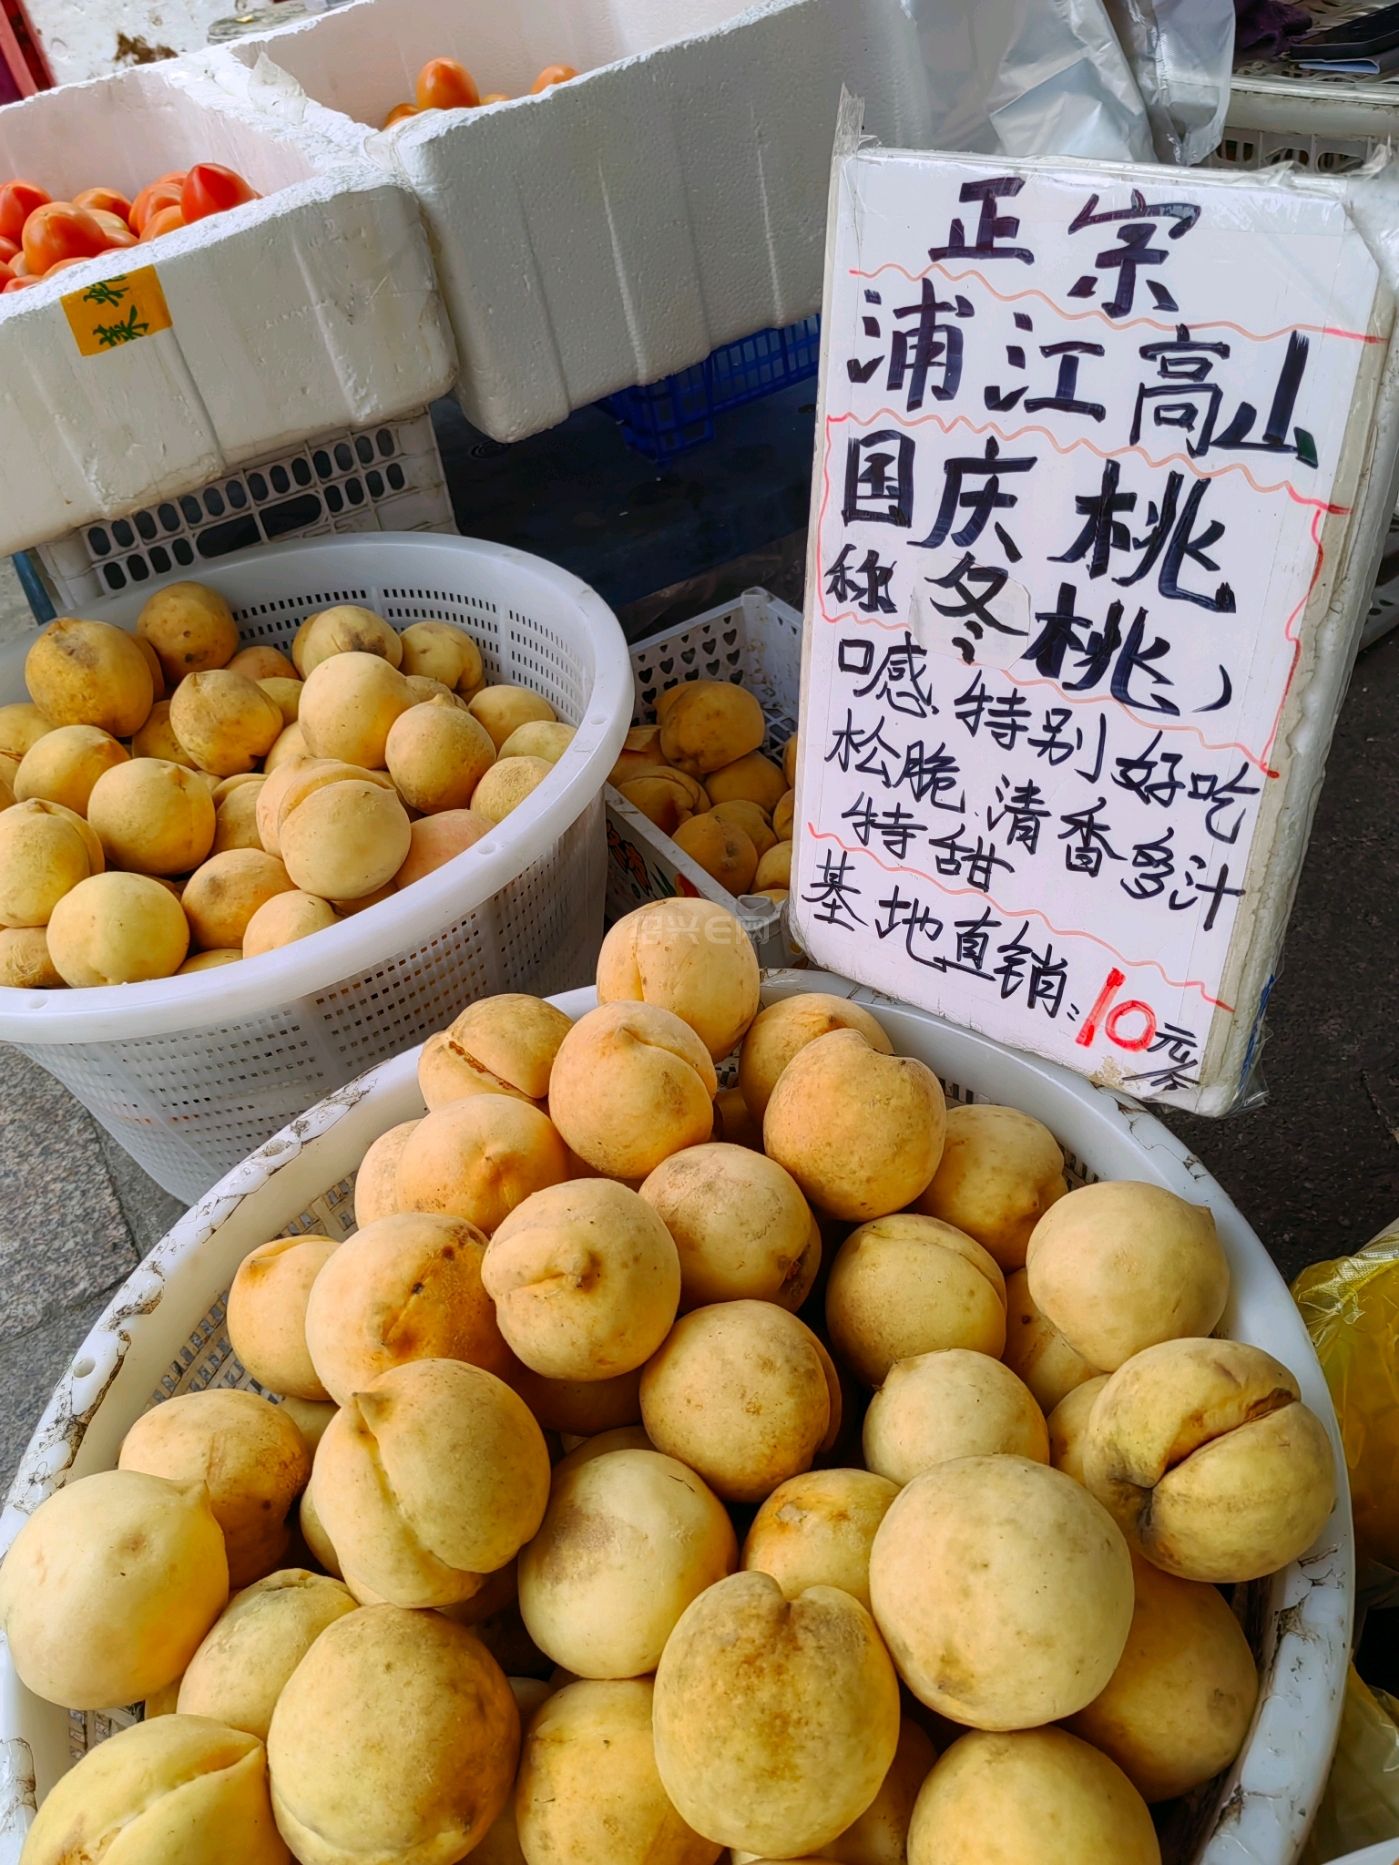 正宗
浦江高山
国庆桃
称冬桃）
口感特别好吃
松脆.清香多汁
特甜
基地直销:10元/
绍兴E网